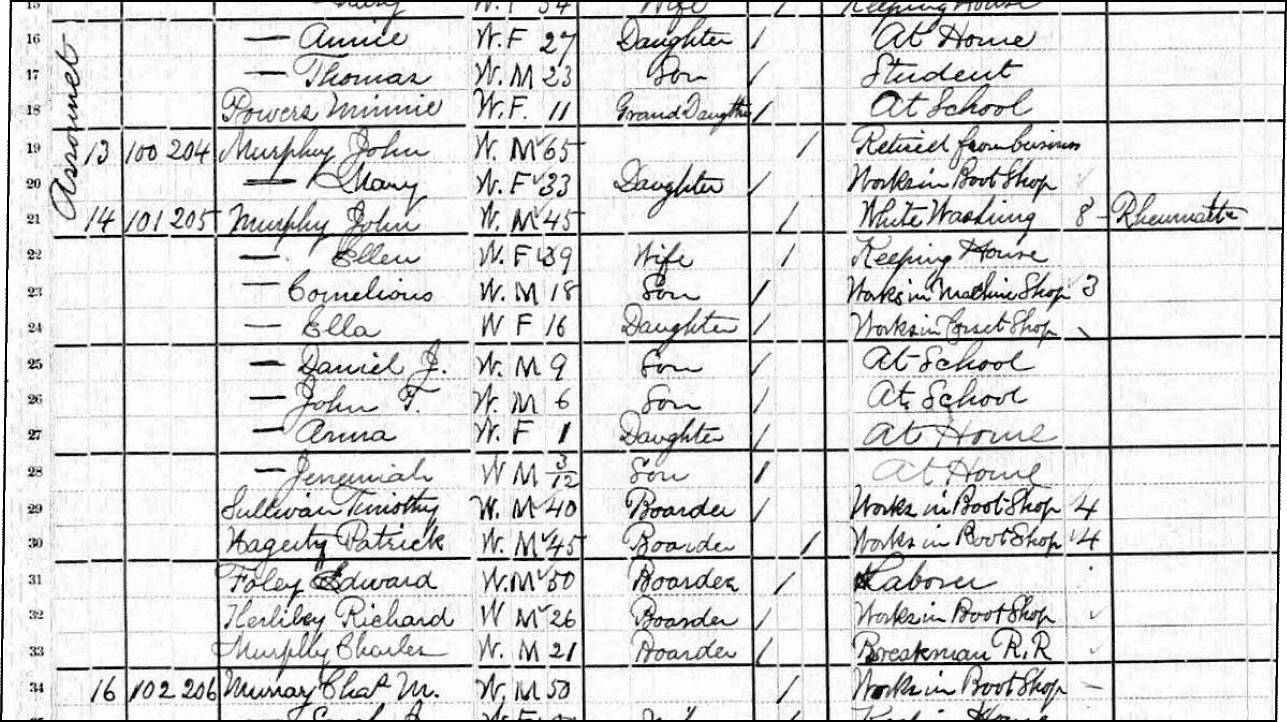 Assonet
15 W. F 34 Wife / Keeping House
16 — Annie W. F 27 Daughter / At Home
17 — Thomas W. M 23 Son / Student
18 Powers Minnie W. F. 11 Grand Daughter / At School
19 13 100 204 Murphy John W. M 65 / Retired from business
20 — Mary W. F 33 Daughter / Works in Boot Shop
21 14 101 205 Murphy John W. M 45 / White Washing 8 – Rheumatic
22 — Ellen W. F 39 Wife / Keeping House
23 — Cornelious W. M 18 Son / Works in Machine Shop 3
24 — Ella W F 16 Daughter / Works in Corset Shop
25 — Daniel J. W. M 9 Son / At School
26 — John F. W. M 6 Son / At School
27 — Anna W. F 1 Daughter / At Home
28 — Jeremiah W M 3/12 Son / At Home
29 Sullivan Timothy W. M 40 Boarder / Works in Boot Shop 4
30 Hagerty Patrick W. M 45 Boarder / Works in Boot Shop 4
31 Foley Edward W. M 50 Boarder / Laborer
32 Herlihy Richard W M 26 Boarder / Works in Boot Shop
33 Murphy Charles W. M 21 Boarder / Breakman R.R
34 16 102 206 Murray Chas M. W. M 50 / Works in Boot Shop